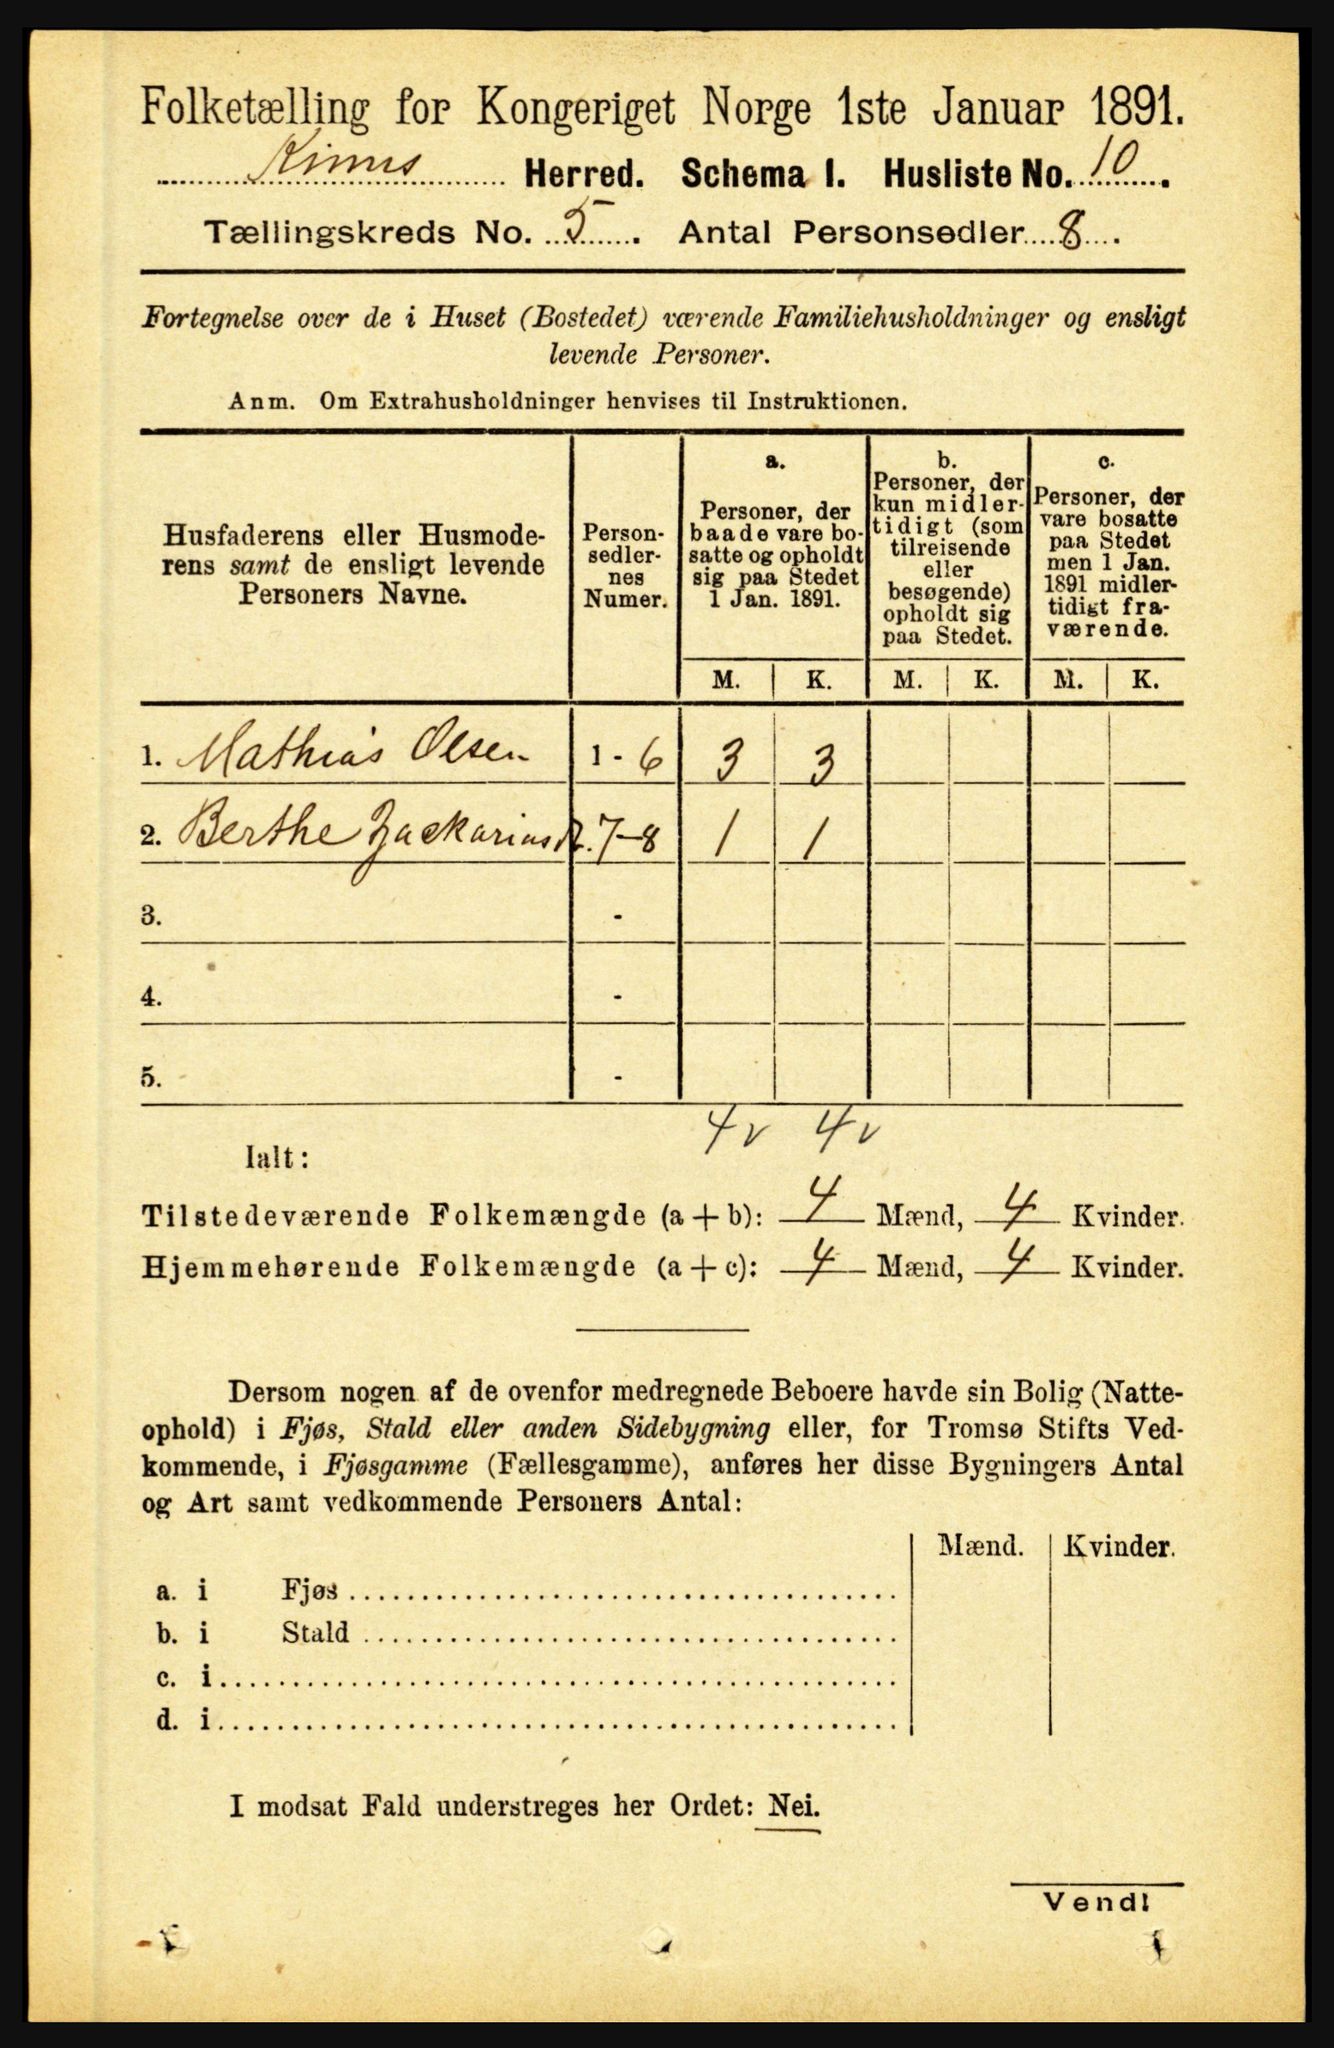 Folketælling for Kongeriget Norge 1ste Januar 1891.
Kinns Herred. Schema I. Husliste No. 10.
Tællingskreds No. 5. Antal Personsedler 8.
Fortegnelse over de i Huset (Bostedet) værende Familiehusholdninger og ensligt
levende Personer.
Anm. Om Extrahusholdninger henvises til Instruktionen.
Husfaderens eller Husmode-
rens samt de ensligt levende
Personers Navne.
Person-
sedler-
nes
Numer.
a.
Personer, der
baade vare bo-
satte og opholdt
sig paa Stedet
1 Jan. 1891.
b.
Personer, der
kun midler-
tidigt (som
tilreisende
eller
besøgende)
opholdt sig
paa Stedet.
c.
Personer, der
vare bosatte
paa Stedet
men 1 Jan.
1891 midler-
tidigt fra-
værende.
M. K. M. K. M. K.
1. Mathias Olsen 1 - 6 3 3
2. Berthe Zackariasd. 7-8 1 1
3. -
4. -
5. -
4v 4v
Ialt:
Tilstedeværende Folkemængde (a+b): 4 Mænd, 4 Kvinder.
Hjemmehørende Folkemængde (a+c): 4 Mænd, 4 Kvinder.
Dersom nogen af de ovenfor medregnede Beboere havde sin Bolig (Natte-
ophold) i Fjøs, Stald eller anden Sidebygning eller, for Tromsø Stifts Ved-
kommende, i Fjøsgamme (Fællesgamme), anføres her disse Bygningers Antal
og Art samt vedkommende Personers Antal:
Mænd. Kvinder.
a. i Fjøs
b. i Stald
c. i
d. i
I modsat Fald understreges her Ordet: Nei.
Vend!